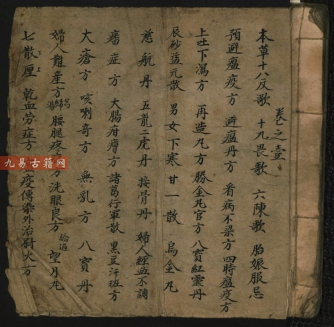 卷之壹
本草十八反歌 十九畏歌 六陳歌 胎娠服忌
預避瘟疫方 避瘟丹方 看病不染方 四時瘟疫方
上吐下瀉方 再造丸方 勝金丸官方 八寶紅靈丹
辰砂益元散 男女下寒 甘一散 烏金丸
慈航丹 五龍二虎丹 接骨丹 婦人經血不調
瘡症方 大腸府癰方 諸葛行軍散 黑豆汗班方
大瘡方 咳嗽奇方 無亂方 八寶丹
婦人難產方 腰腿疼 洗眼良方 望月丸
七散厘 乾血勞症方 疫傳 外治尉火方
九易古籍网